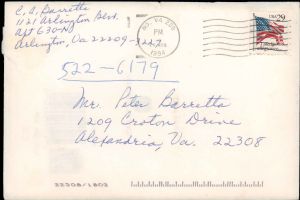 C. A. Barretta
1121 Arlington Blvd.
Apt 630-N
Arlington, Va 22209-
VA 220
PM
1994
USA 29
522-6179
Mr. Peter Barretta
1209 Croton Drive
Alexandria, Va. 22308
22308/1802